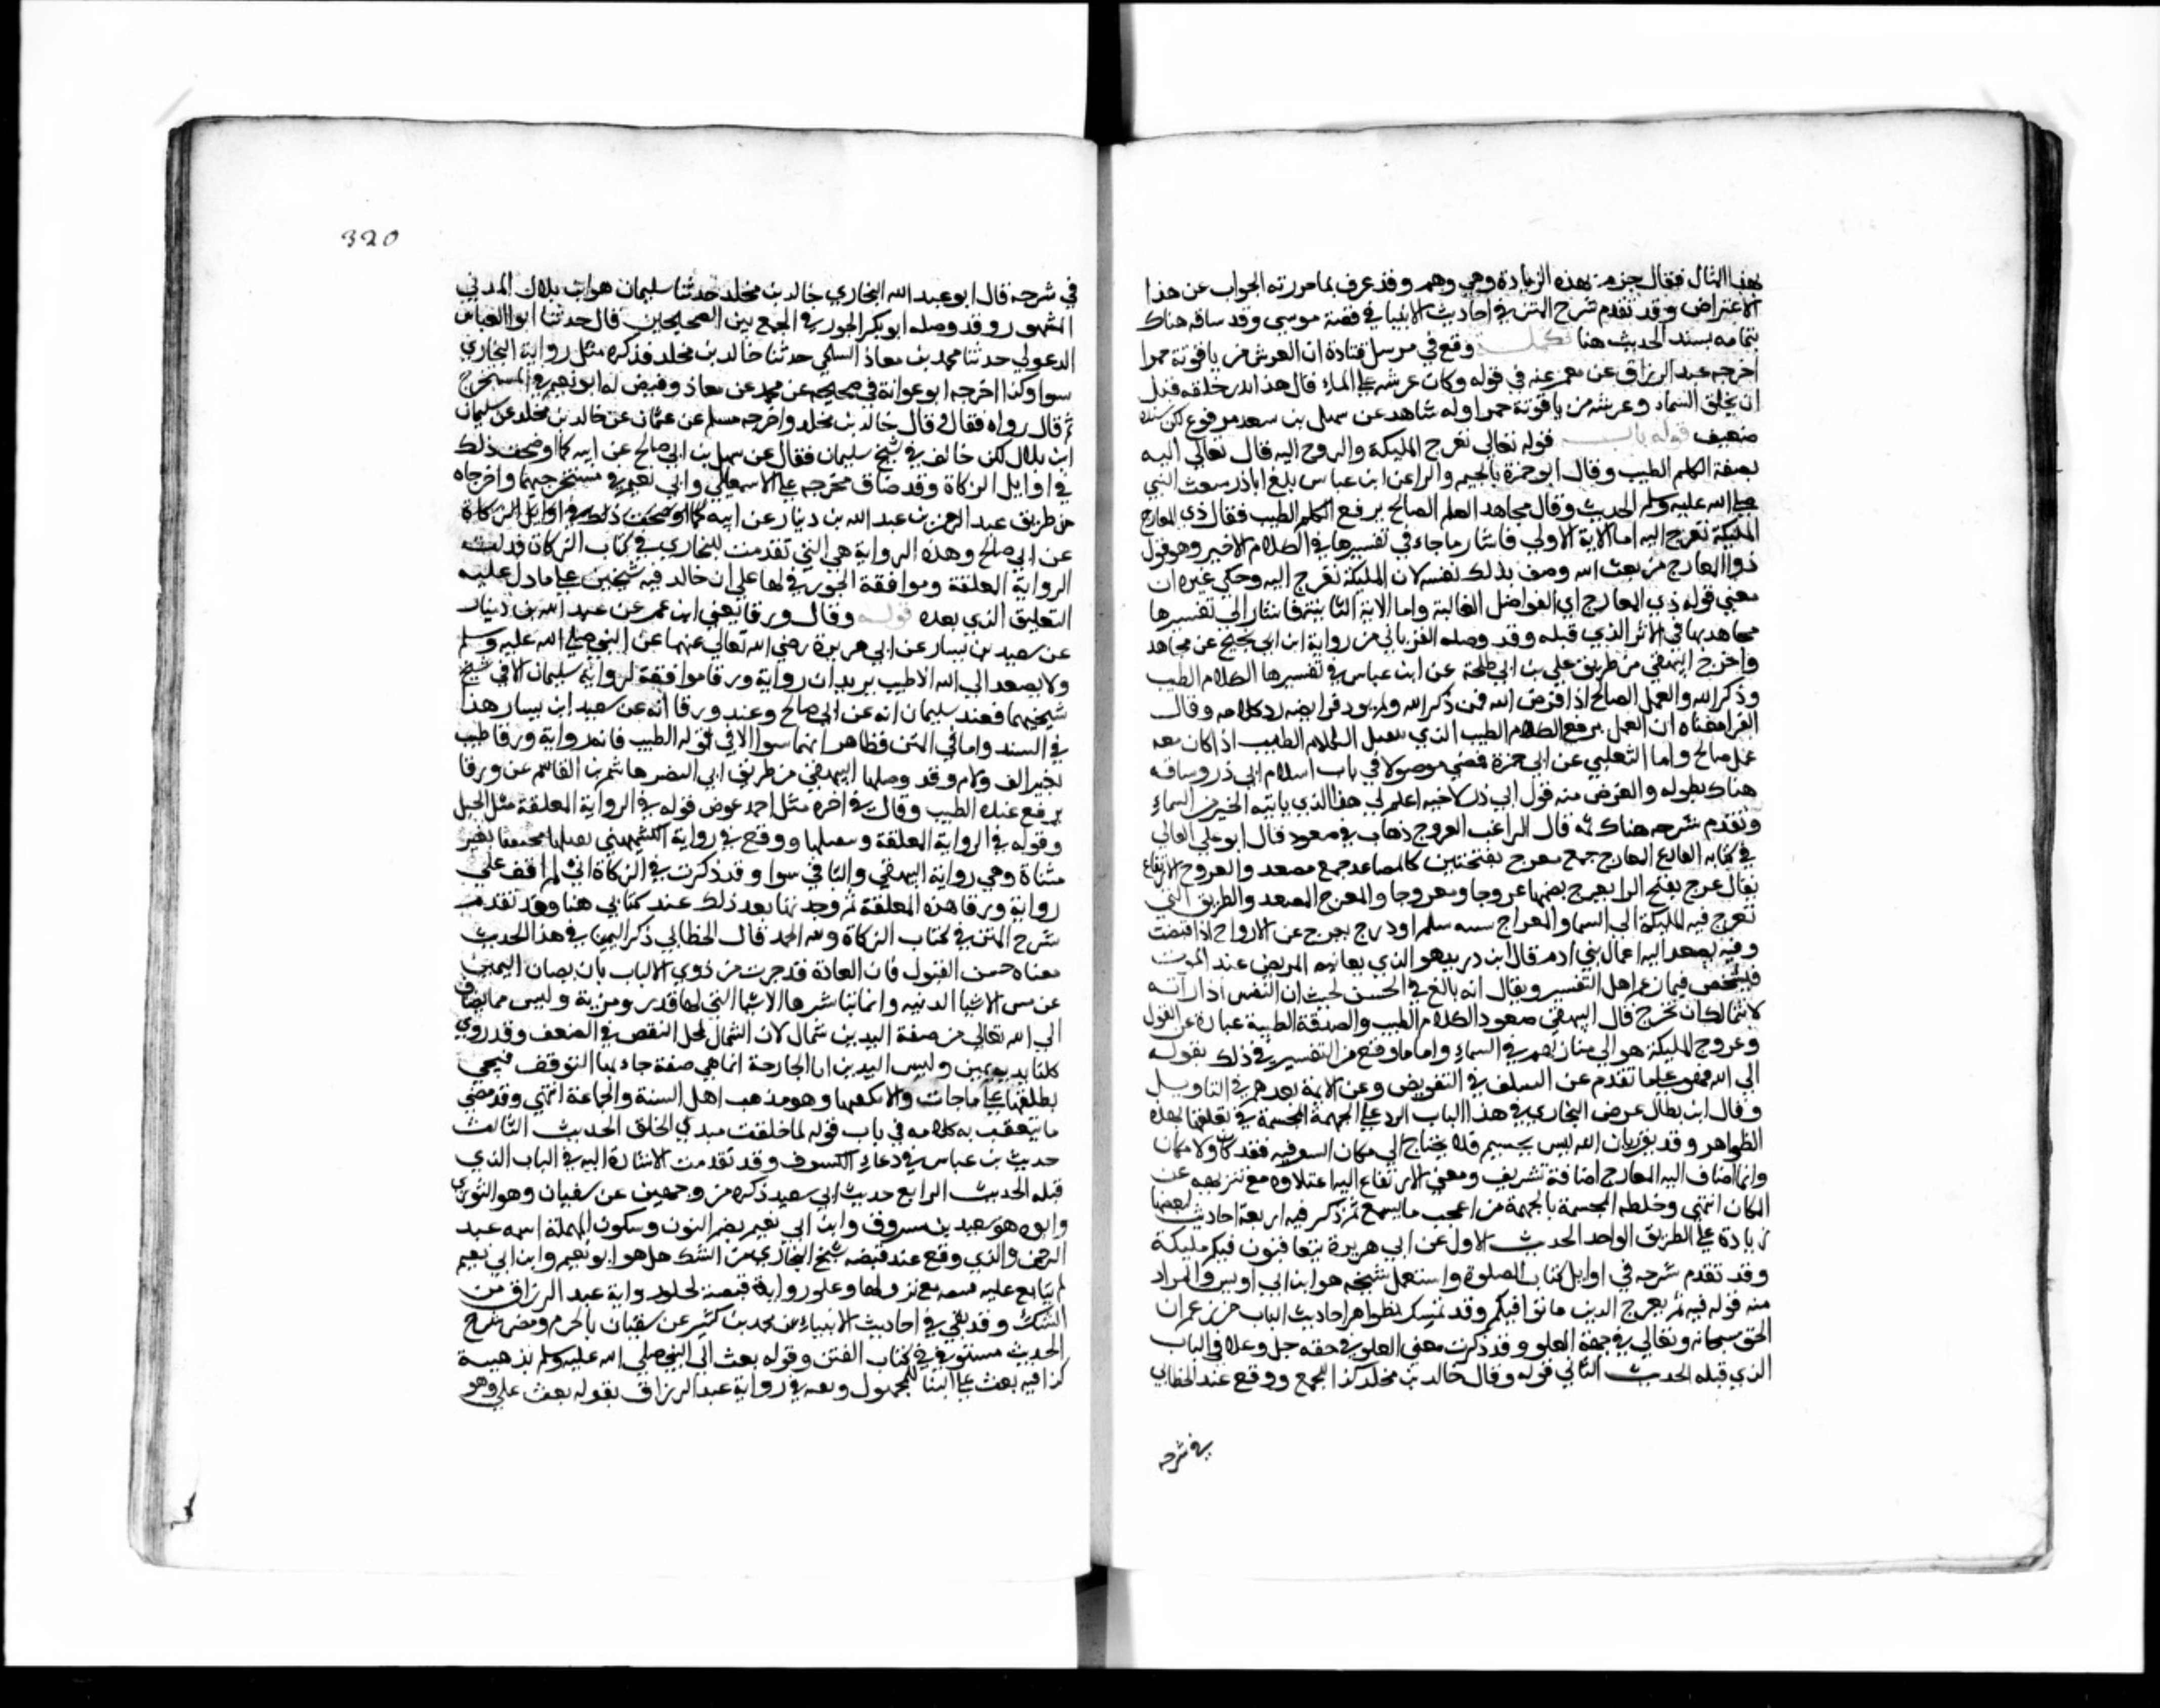 بهذا المثال فقال جزمه بهذه الزيادة وهي وهم وقد عرف بما حررته الجواب عن هذا
الاعتراض وقد تقدم شرح المتن في احاديث الانبيا في قصة موسى وقد ساقه هناك
بتمامه بسند الحديث هنا تكملــة وقع في مرسل قتادة ان العرش من ياقوتة حمرا
اخرجه عبد الرزاق عن معمر عنه في قوله وكان عرشه على الماء قال هذا بدء خلقه قبل
ان يخلق السماء وعرشه من ياقوتة حمرا وله شاهد عن سهل بن سعد مرفوع لكن سنده
ضعيف قوله باب قوله تعالى تعرج المليكة والروح اليه قال تعالى اليه
يصعد الكلم الطيب وقال ابو جمرة بالجيم والرا عن ابن عباس بلغ اباذر مبعث النبي
صلى الله عليه وسلم الحديث وقال مجاهد العمل الصالح يرفع الكلم الطيب يقال ذي المعارج
المليكة تعرج اليه اما الاية الاولى فاشار ما جاء في تفسيرها في الكلام الاخير وهو قول
ذو المعارج من نعت الله وصف بذلك نفسه لان المليكة تعرج اليه وحكى غيره ان
معنى قوله ذي المعارج اي الفواضل العالية واما الاية الثانية فاشار الى تفسيرها
مجاهد بها في الاثر الذي قبله وقد وصله الفريابي من رواية ابن ابي نجيح عن مجاهد
واخرج البيهقي من طريق علي بن ابي طلحة عن ابن عباس في تفسيرها الكلام الطيب
وذكر الله والعمل الصالح اذا فرض الله فمن ذكر الله ولم يود فرايضه رد كلامه وقال
الفرا معناه ان العمل يرفع الكلام الطيب الذي يقبل الكلام الطيب اذا كان معه
عمل صالح واما التعليق عن ابي جمرة فمضى موصولا في باب اسلام ابي ذر وساقه
هناك بطوله والغرض منه قول ابي ذر لاخيه اعلم لي هذا الذي ياتيه الخبر من السماء
وتقدم شرحه هناك ثمه قال الراغب العروج ذهاب في صعود قال ابو علي القالي
في كتابه البارع المعارج جمع معرج بفتحتين كالمصاعد جمع مصعد والعروج الارتقاع
يقال عرج بفتح الرا يعرج بضمها عروجا ومعروجا والمعرج المصعد والطريق التي
تعرج فيه المليكة الى السما والمعراج سلم او درج يعرج عن الارواح اذا قبضت
وفيه يصعد اليه اعمال بني ادم قال ابن دريد هو الذي يعاينه المريض عند الموت
فيشخص فيما زعم اهل التفسير ويقال انه بالغ في الحسن لحيث ان النفس اذا راته
لا تتمالك ان تخرج قال البيهقي صعود الكلام الطيب والصدقة الطيبة عبارة عن القبول
وعروج المليكة هو الى منازلهم في السماء واما ما وقع من التفسير في ذلك بقوله
الى الله فهو على ما تقدم عن السلف في التفويض وعن الايمة بعدهم في التاويل
وقال ابن بطال غرض البخاري في هذا الباب الرد على الجهمية المجسمة في تعلقها بهذه
الظواهر وقد تقرر ان الله ليس بجسم فلا يحتاج الى مكان يستقر فيه فقد كان ولا مكان
وانما اضاف اليه المعارج اضافة تشريف ومعنى الارتفاع اليه اعتلاوه مع تنزيهه عن
المكان انتهى وخلطه المجسمة بالجهمية من اعجب ما يسمع ثم ذكر فيه اربعة احاديث لبعضها
زيادة على الطريق الواحد الحديث الاول عن ابي هريرة يتعاقبون فيكم مليكة
وقد تقدم شرحه في اوايل كتاب الصلوة واسمعيل شيخه هو ابن ابي اويس والمراد
منه قوله فيه ثم يعرج الدين باتوا فيكم وقد تمسك بظواهر احاديث الباب من زعم ان
الحق سبحانه وتعالى في جهة العلو وقد ذكرت معنى العلو في حقه جل وعلا في الباب
الذي قبله الحديث الثاني قوله وقال خالد بن مخلد كذا للجمع ووقع عند الخطابي
في شرحه
320
في شرحه قال ابو عبد الله البخاري خالد بن مخلد حدثنا سليمان هو ابن بلال المدني
المشهور وقد وصله ابو بكر الجوزقي في الجمع بين الصحيحين قال حدثنا ابو العباس
الدغولي حدثنا محمد بن معاذ السلمي حدثنا خالد بن مخلد فذكره مثل رواية البخاري
سوا وكذا اخرجه ابو عوانة في صحيحه عن محمد بن معاذ وقبض له ابو نعيم في المستخرج
ثم قال رواه فقال قال خالد بن مخلد واخرجه مسلم عن عثمان عن خالد بن مخلد عن سليمان
ابن بلال لكن خالف في شيخ سليمان فقال عن سهيل بن ابي صالح عن ابيه كما اوضحت ذلك
في اوايل الزكاة وقد ضاق مخرجه على الاسماعيلي وابي نعيم في مستخرجيهما واخرجاه
من طريق عبد الرحمن بن عبد الله بن دينار عن ابيه كما اوضحت ذلك في اوايل الزكاة
عن ابي صالح وهذه الرواية هي التي تقدمت للبخاري في كتاب الزكاة قد لت
الرواية المعلقة وموافقة الجوزقي لها على ان خالد فيه شيخين على ما دل عليه
التعليق الذي بعده قولــه وقال ورقا يعني ابن عمر عن عبد الله بن دينار
عن سعيد بن يسار عن ابي هريرة رضي الله تعالى عنهما عن النبي صلى الله عليه وسلم
ولا يصعد الى الله الا طيب يريد ان رواية ورقا موافقة لرواية سليمان الا في شيخ
شيخيهما فعند سليمان انه عن ابي صالح وعند ورقا انه عن سعيد ابن يسار هذا
في السند واما في المتن فظاهره انهما سوا الا في قوله الطيب فانه في رواية ورقا طيب
بغير الف ولام وقد وصلها البيهقي من طريق ابي النضر هاشم بن القاسم عن ورقا
يرفع عنده الطيب وقال في اخره مثل احد عوض قوله في الرواية المعلقة مثل الجبل
وقوله في الرواية المعلقة ويتقبلها ووقع في رواية الكشميهني يقبلها مخففا بغير
مثناة وهي رواية البيهقي والباقي سوا وقد ذكرت في الزكاة اني لم اقف على
رواية ورقا هذه المعلقة ثم وجدتها بعد ذلك عند كتابي هنا وقد تقدم
شرح المتن في كتاب الزكاة ولله الحمد قال الخطابي ذكر اليمين في هذا الحديث
معناه حسن القبول فان العادة قد جرت من ذوي الالباب بان يصان اليمين
عن مس الاشيا الدنيه وانما تباشر بها الاشيا التي لها قدر ومزية وليس مما يضاف
الى الله تعالى من صفة اليدين شمال لان الشمال لمحل النقص في الضعف وقد روي
كلتا يديه يمين وليس اليدين انا الجارحة انما هي صفة جاء بها التوقيف فنحن
نطلقها على ما جات ولا نكيفها وهو مذهب اهل السنة والجماعة انتهى وقد مضى
ما يتعقب به كلامه في باب قوله لما خلقت بيدي الخلق الحديث الثالث
حديث بن عباس في دعاء الكسوف وقد تقدمت الاشارة اليه في الباب الذي
قبله الحديث الرابع حديث ابي سعيد ذكره من وجهين عن سفيان وهو الثوري
وابوه هو سعيد بن مسروق وابن ابي نعيم بضم النون وسكون المهملة اسمه عبد
الرحمن والذي وقع عند قبيصه شيخ البخاري من الشك هل هو ابو نعيم وابن ابي نعيم
لم يتابع عليه قبيصه مع نزولها وعلو رواية قبيصة لخلو رواية عبد الرزاق من
الشك وقد تقي في احاديث الانبياء عن محمد بن كثير عن سفيان بالجزم ومضى شرح
الحديث مستوفى في كتاب الفتن وقوله بعث الى النبي صلى الله عليه وسلم بذهيبة
كذا فيه بعث على البنا للمجهول وبينه في رواية عبد الرزاق بقوله بعث علي وهو